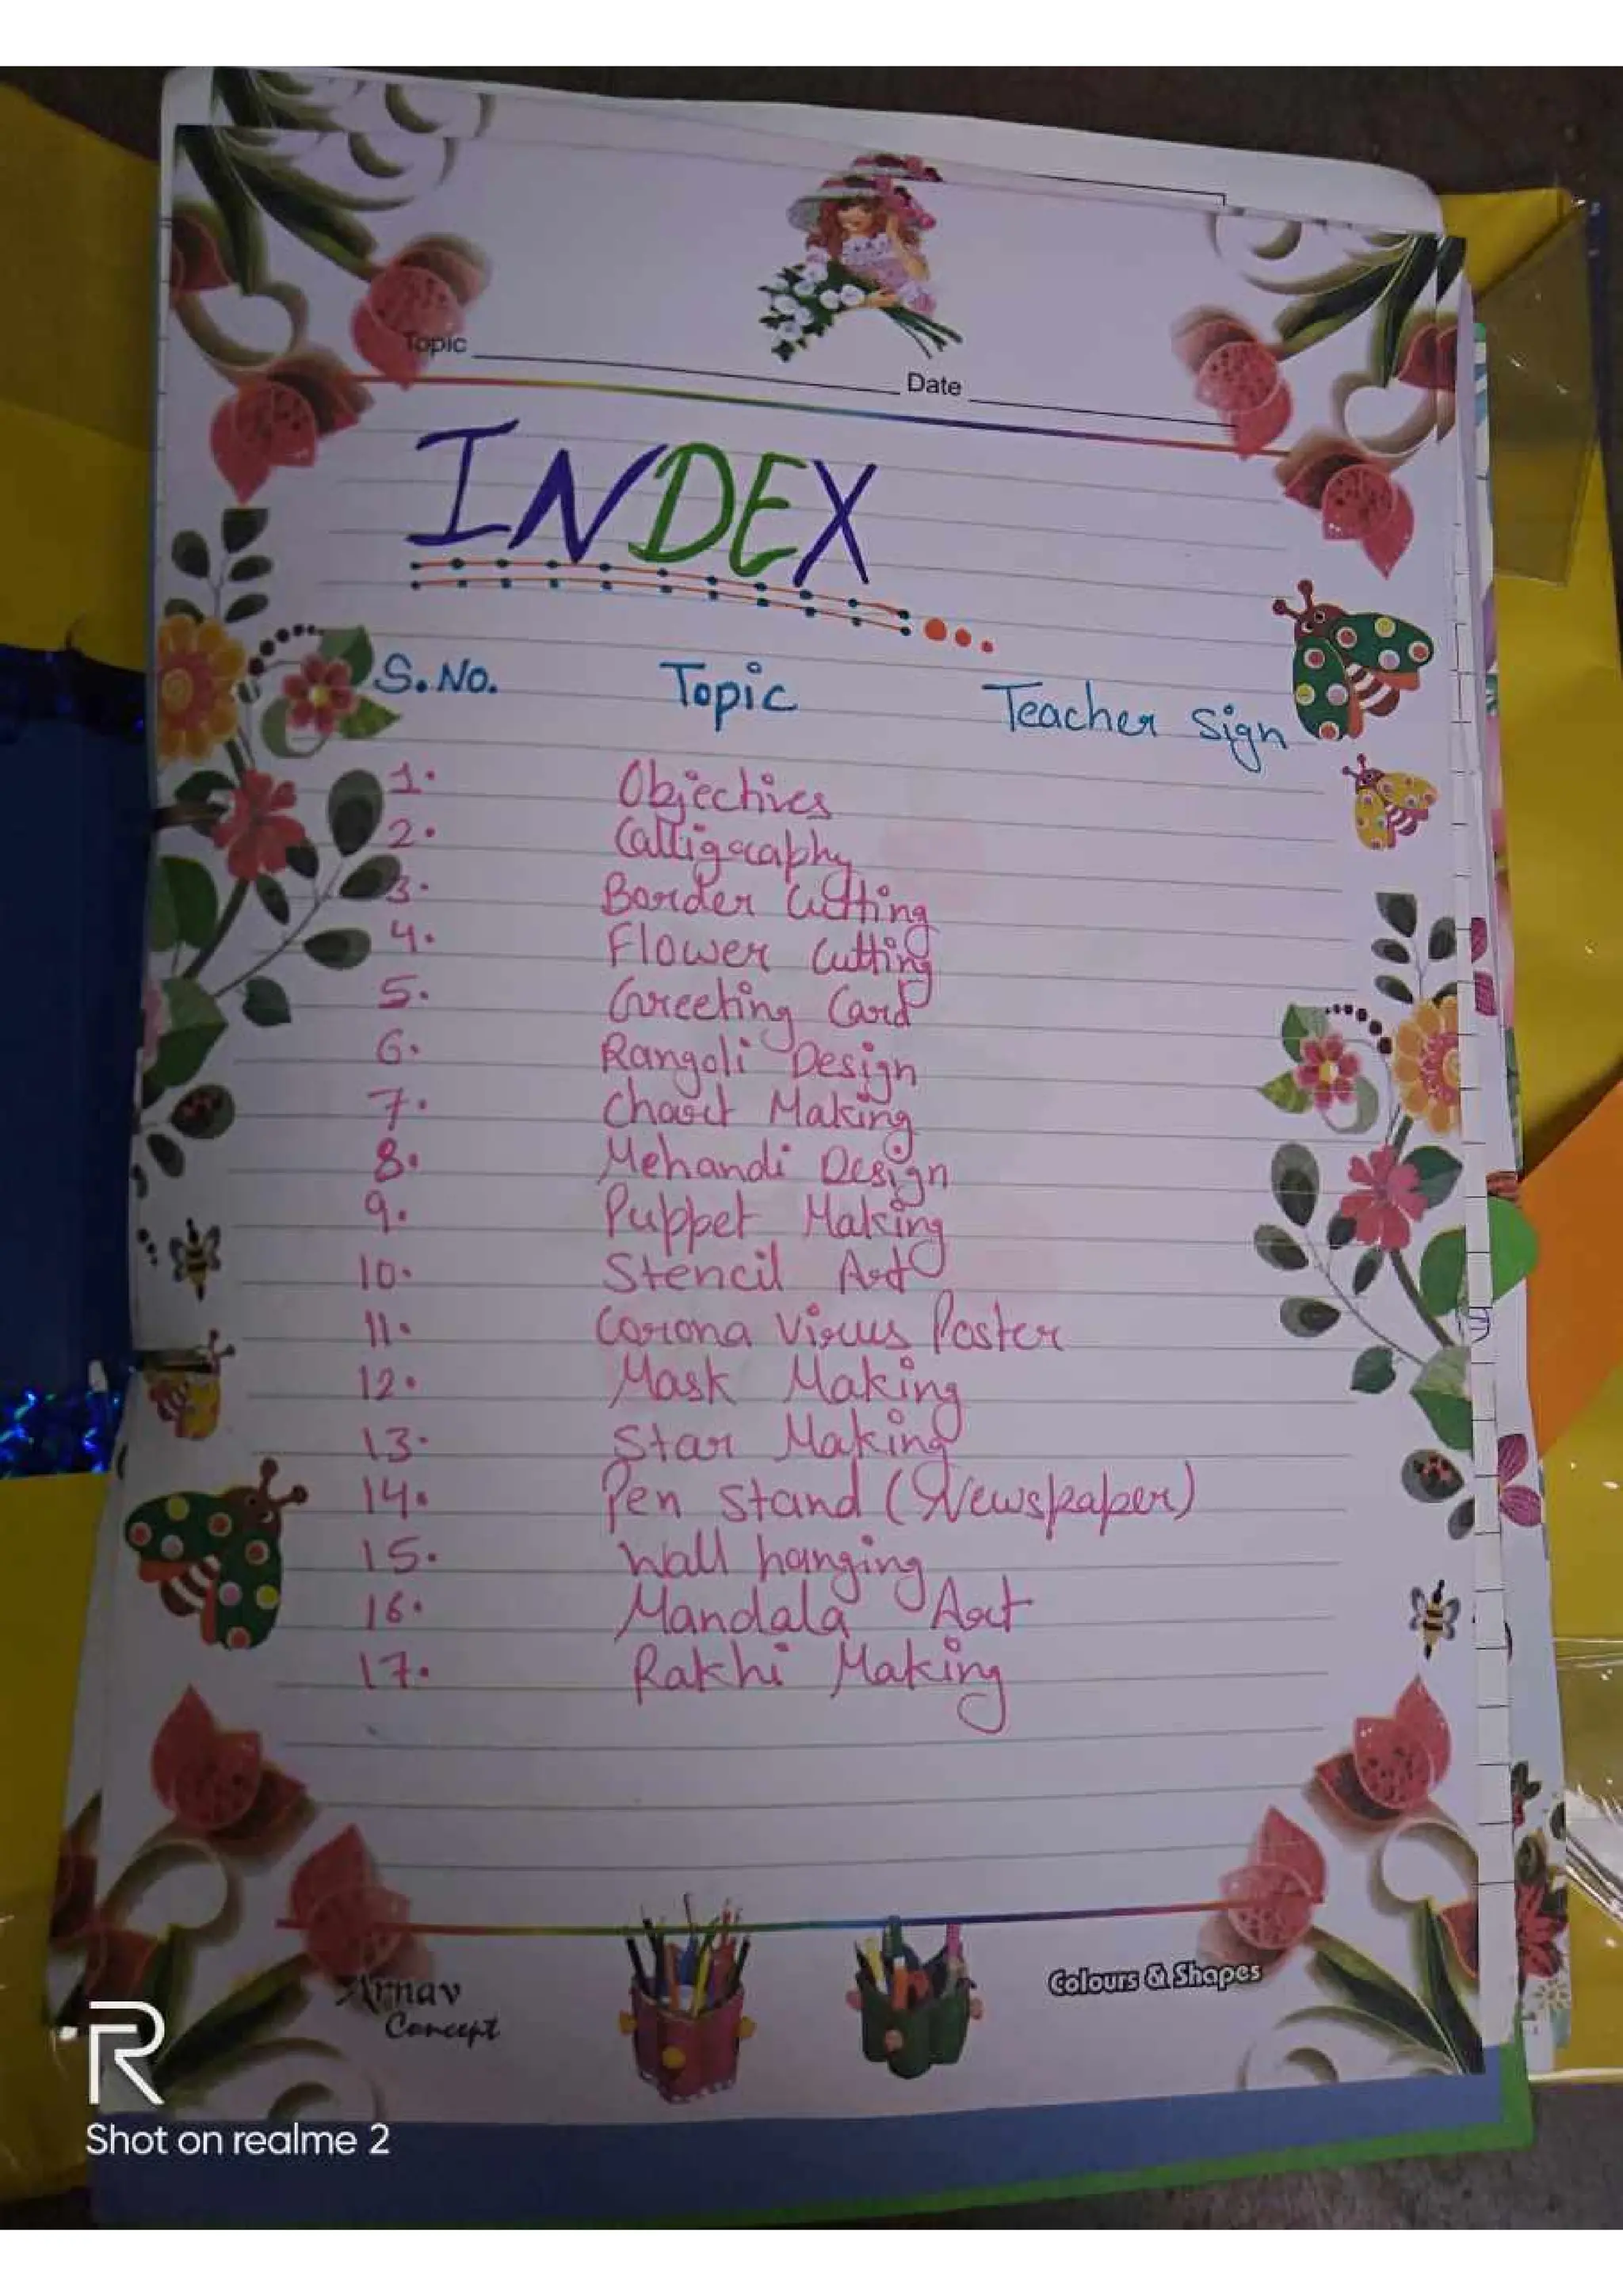 Topic
Date
INDEX
S.No. Topic Teacher Sign
1. Objectives
2. Calligraphy
3. Border Cutting
4. Flower Cutting
5. Greeting Card
6. Rangoli Design
7. Chart Making
8. Mehandi Design
9. Puppet Making
10. Stencil Art
11. Corona Virus Poster
12. Mask Making
13. Star Making
14. Pen Stand (Newspaper)
15. Wall hanging
16. Mandala Art
17. Rakhi Making
Arnav
Concept
Colours & Shapes
R
Shot on realme 2